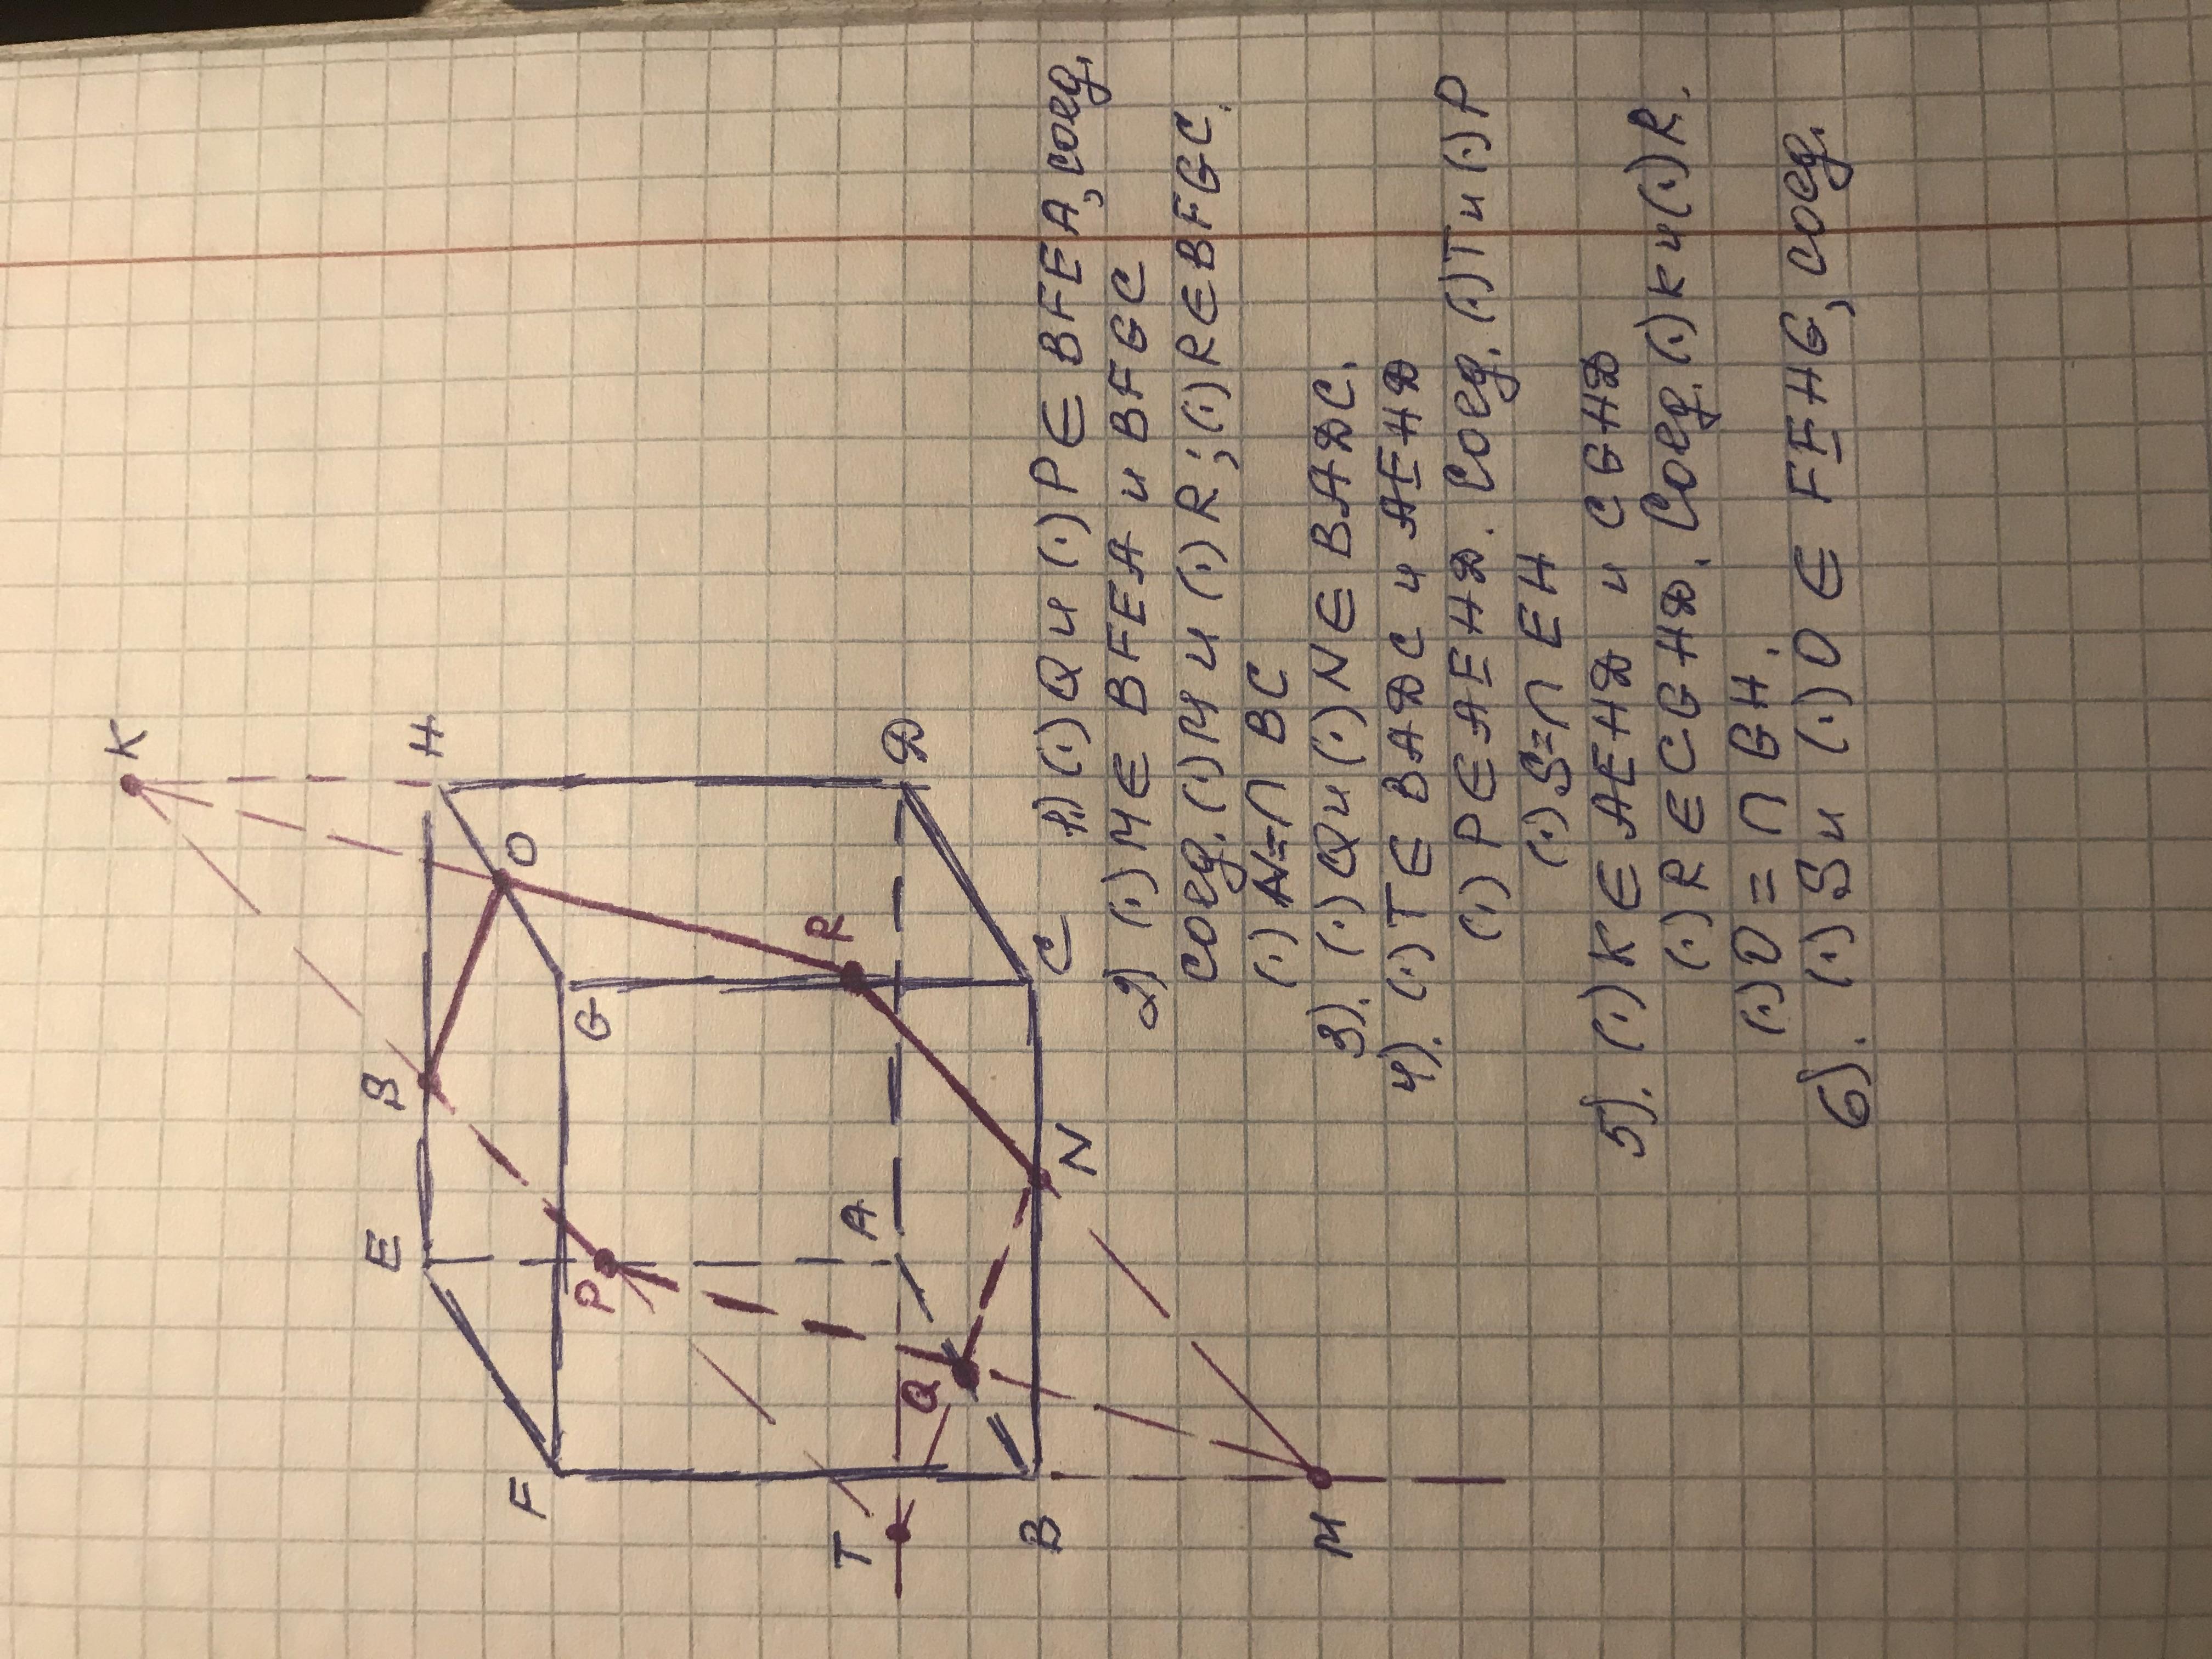 K
S
H
E
O
P
F
G
R
A
D
Q
T
B
N
C
M
1) (·) Q и (·) P ∈ BFEA, соед.
2) (·) M ∈ BFEA и BFGC
соед. (·) M и (·) R; (·) R ∈ BFGC.
(·) N = ∩ BC
3). (·) Q и (·) N ∈ BADC.
4). (·) T ∈ BADC и AEHD
(·) P ∈ AEHD. Соед. (·) T и (·) P
(·) S = ∩ EH
5). (·) K ∈ AEHD и CGHD
(·) R ∈ CGHD. Соед. (·) K и (·) R.
(·) O = ∩ GH.
6). (·) S и (·) O ∈ FEHG, соед.